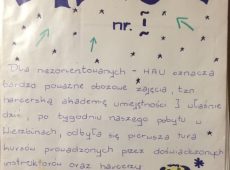 nr. 1
Dla niezorientowanych - HAU oznacza
bardzo poważne obozowe zajęcia, tzn.
harcerską akademię umiejętności. I właśnie
dziś, po tygodniu naszego pobytu w
Wierzbinach, odbyła się pierwsza tura
kursów prowadzonych przez doświadczonych
instruktorów oraz harcerzy